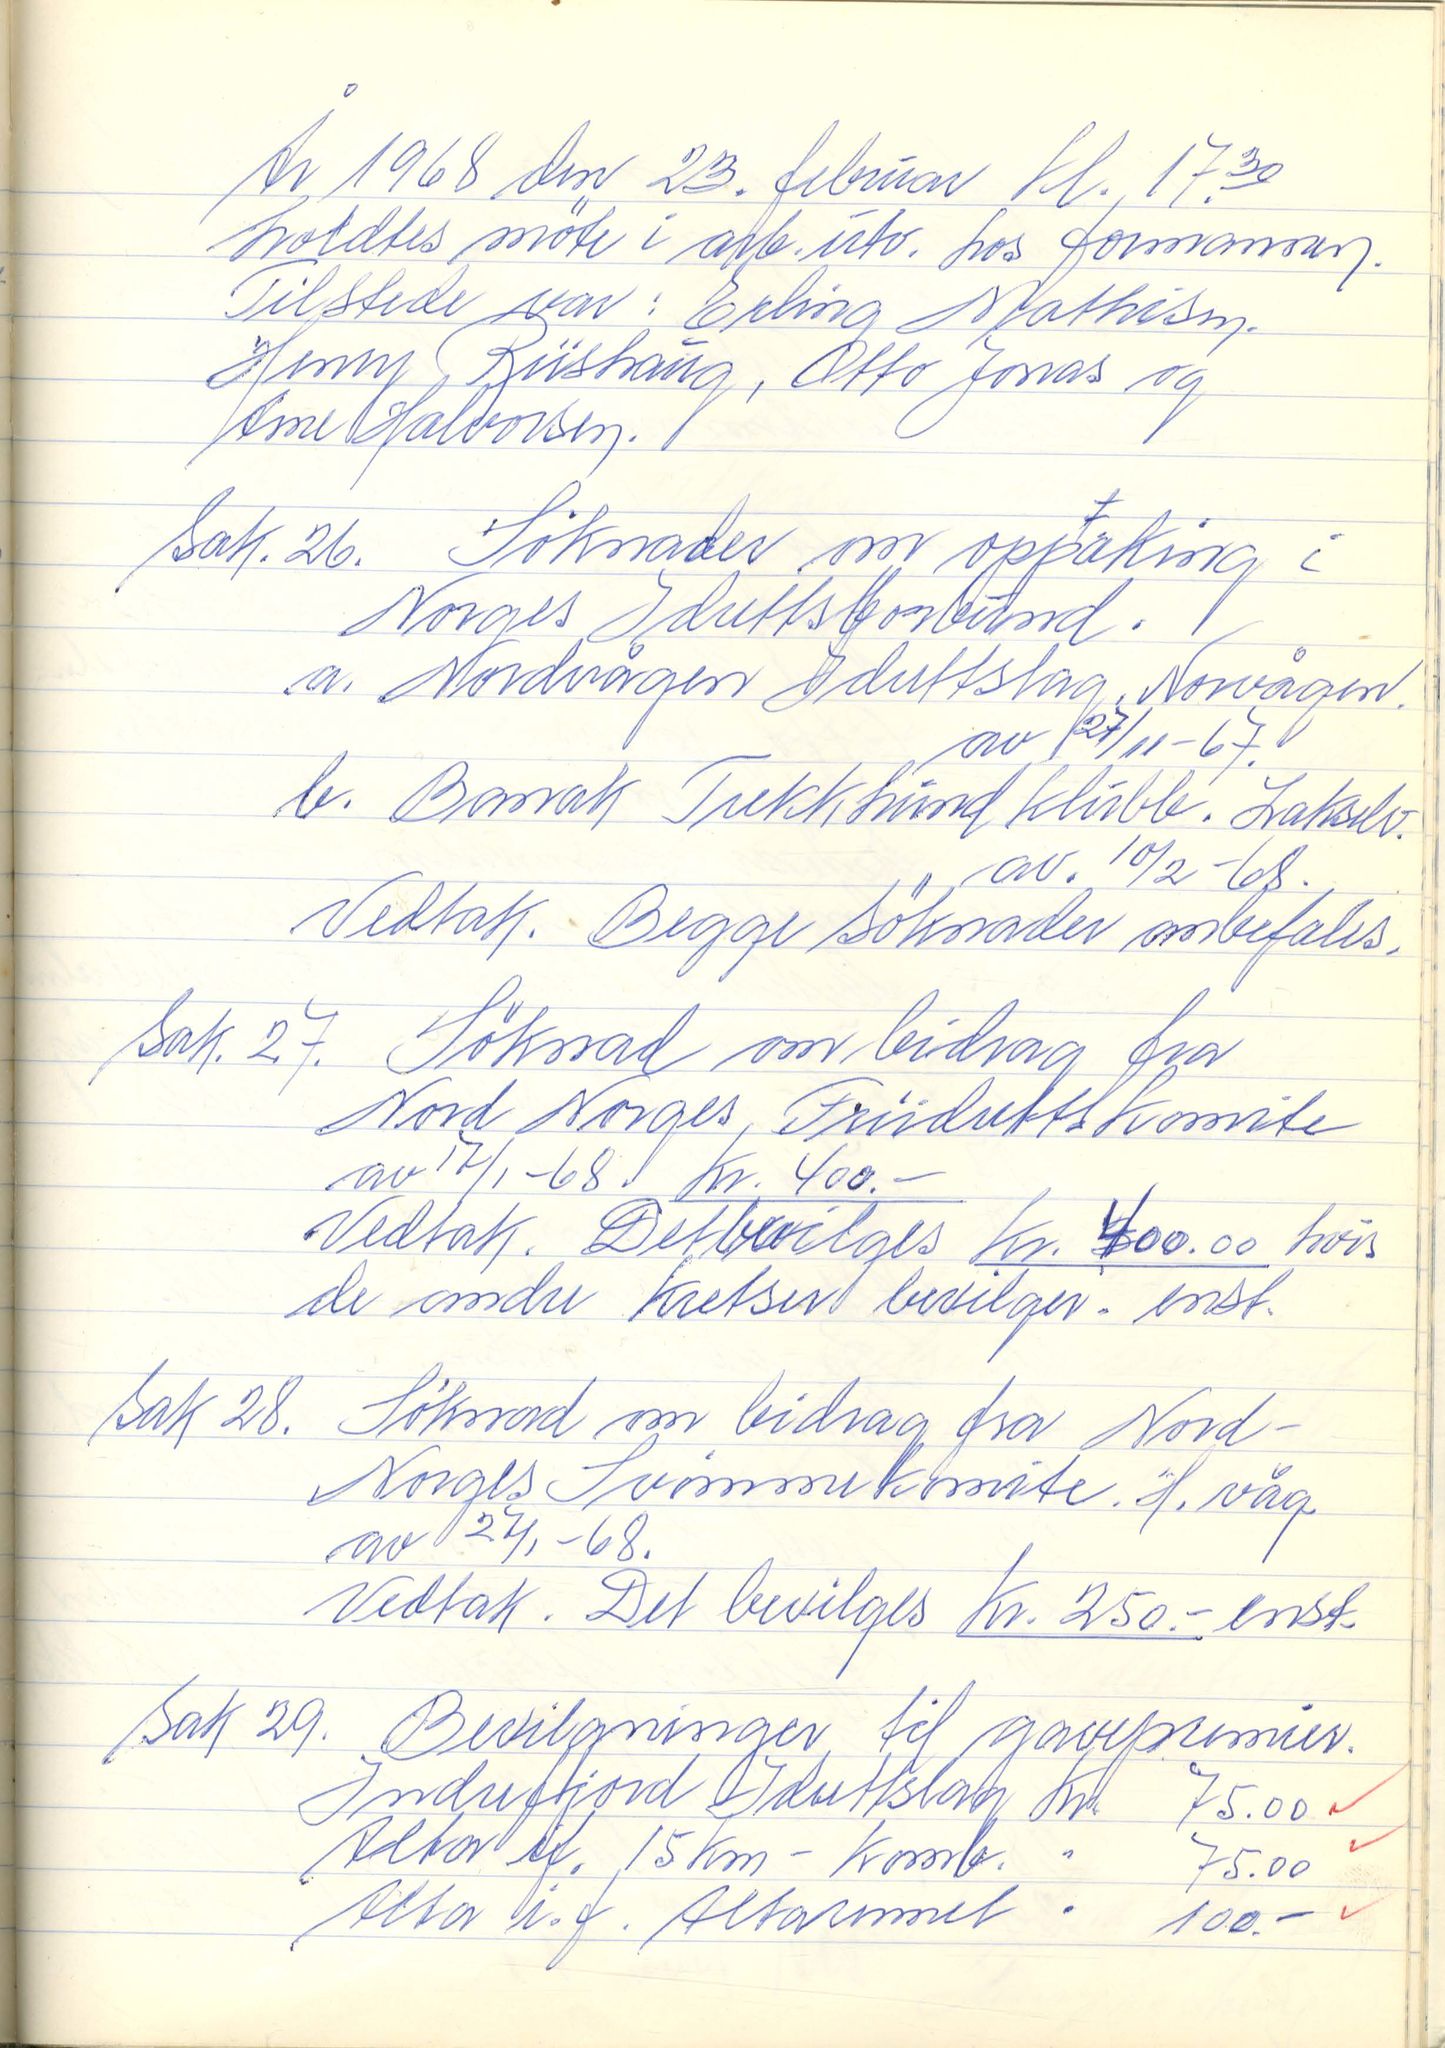 År 1968 den 23. februar kl. 17.30
holdtes möte i arb.utv. hos formannen.
Tilstede var: Erling Mathisen.
Henry Riishaug, Otto Jonas og
Arne Halvorsen.
Sak. 26. Söknader om opptaking i
Norges Idrettsforbund.
a. Nordvågen Idrettslag, Norvågen.
av 27/11-67.
b. Banak Trekkhund klubb. Lakselv.
av. 10/2-68.
Vedtak. Begge söknader anbefales.
Sak. 27. Söknad om bidrag fra
Nord Norges Friidrettskomite
av 17/1-68. Kr. 400.-
Vedtak. Det bevilges Kr. 400.00 hvis
de andre kretser bevilger. enst.
Sak 28. Söknad om bidrag fra Nord-
Norges Svömmekomite. H. våg
av 27/1-68.
Vedtak. Det bevilges Kr. 250.- enst.
Sak 29. Bevilgninger til gavepremier.
Indrefjord Idrettslag Kr. 75.00
Alta if. 15 km - komb. " 75.00
Alta i.f. Altarennet " 100.-